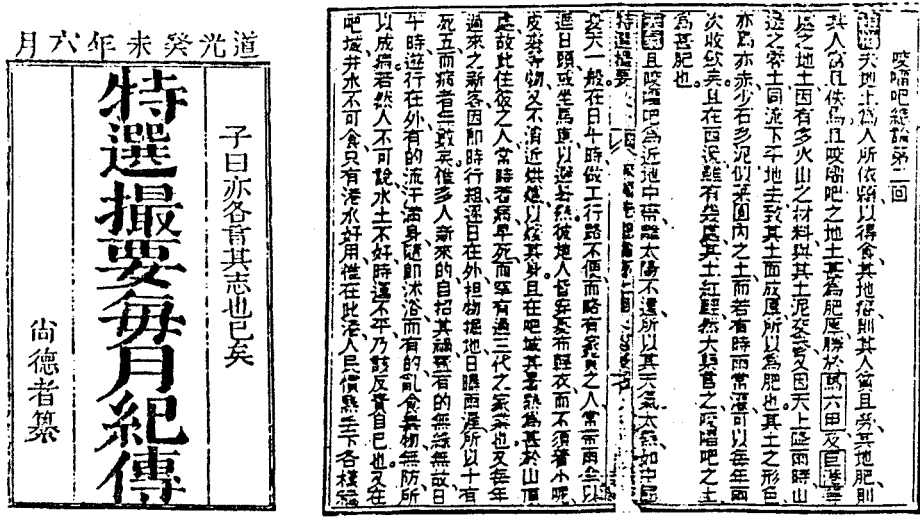 道光癸未年六月
子曰亦各言其志也已矣
特選撮要每月紀傳
尚德者纂
咬𠺕吧總論第二回
夫地土為人所依賴以得食其地瘦則其人貧且勞其地肥則
其人富且佚焉且咬𠺕吧之地土甚為肥厚勝於萬六甲及巨港等
處之地土因有多火山之材料與其土泥交參又因天上降雨時山
邊之客土同流下平地去致其土面成厚所以為肥也其土之形色
亦為赤少石多泥似菜園內之土而若有時雨常灑可以每年兩
次收歛矣且在西溪雖有幾處其土紅然大槩言之咬𠺕吧之土
為甚肥也
天氣且咬𠺕吧為近地中帶離太陽不遠所以其天氣太熱如中國
特選撮要
夏天一般在日午時做工行路不便而略有家資之人常需雨傘以
遮日頭或坐馬車以避暑然彼地人皆穿夏布輕衣而不須著小呢
皮裘等物又不須近烘爐以煖其身且在吧城其暑熱為甚於山頂
處故此住彼之人常時若病早死而罕有過三代之家業也又每年
過來之新客因即時行粗逐日在外担物掘地日曝雨淫所以十有
死五而病者無數矣惟多人新來的自招其禍有的無緣無故日
午時遊行在外有的流汗滿身隨即沐浴而有的亂食異物無防所
以成病若然人不可說水土不好時運不平乃該反責自己也又在
吧城井水不可食只有港水好用惟在此港人民慣熟丟下各樣穢